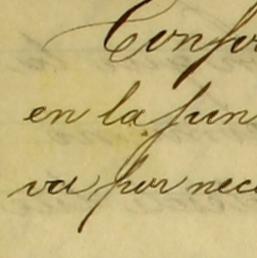 Confor
en la jun
va por nece